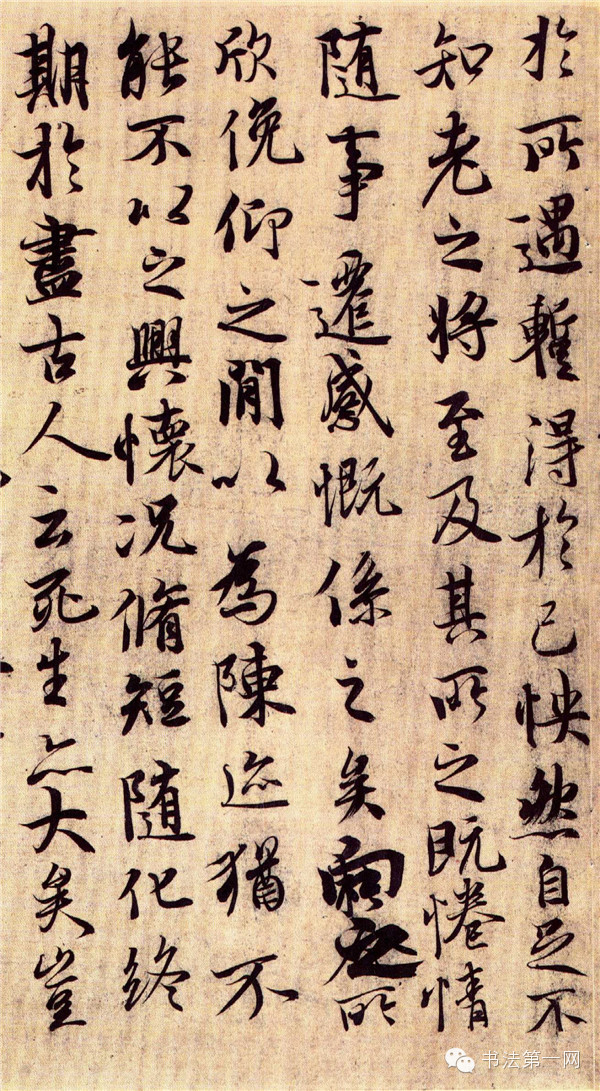 於所遇暫得於己怏然自足不
知老之將至及其所之既惓情
隨事遷感慨係之矣向之所
欣俛仰之閒以為陳迹猶不
能不以之興懷況脩短隨化終
期於盡古人云死生亦大矣豈
书法第一网